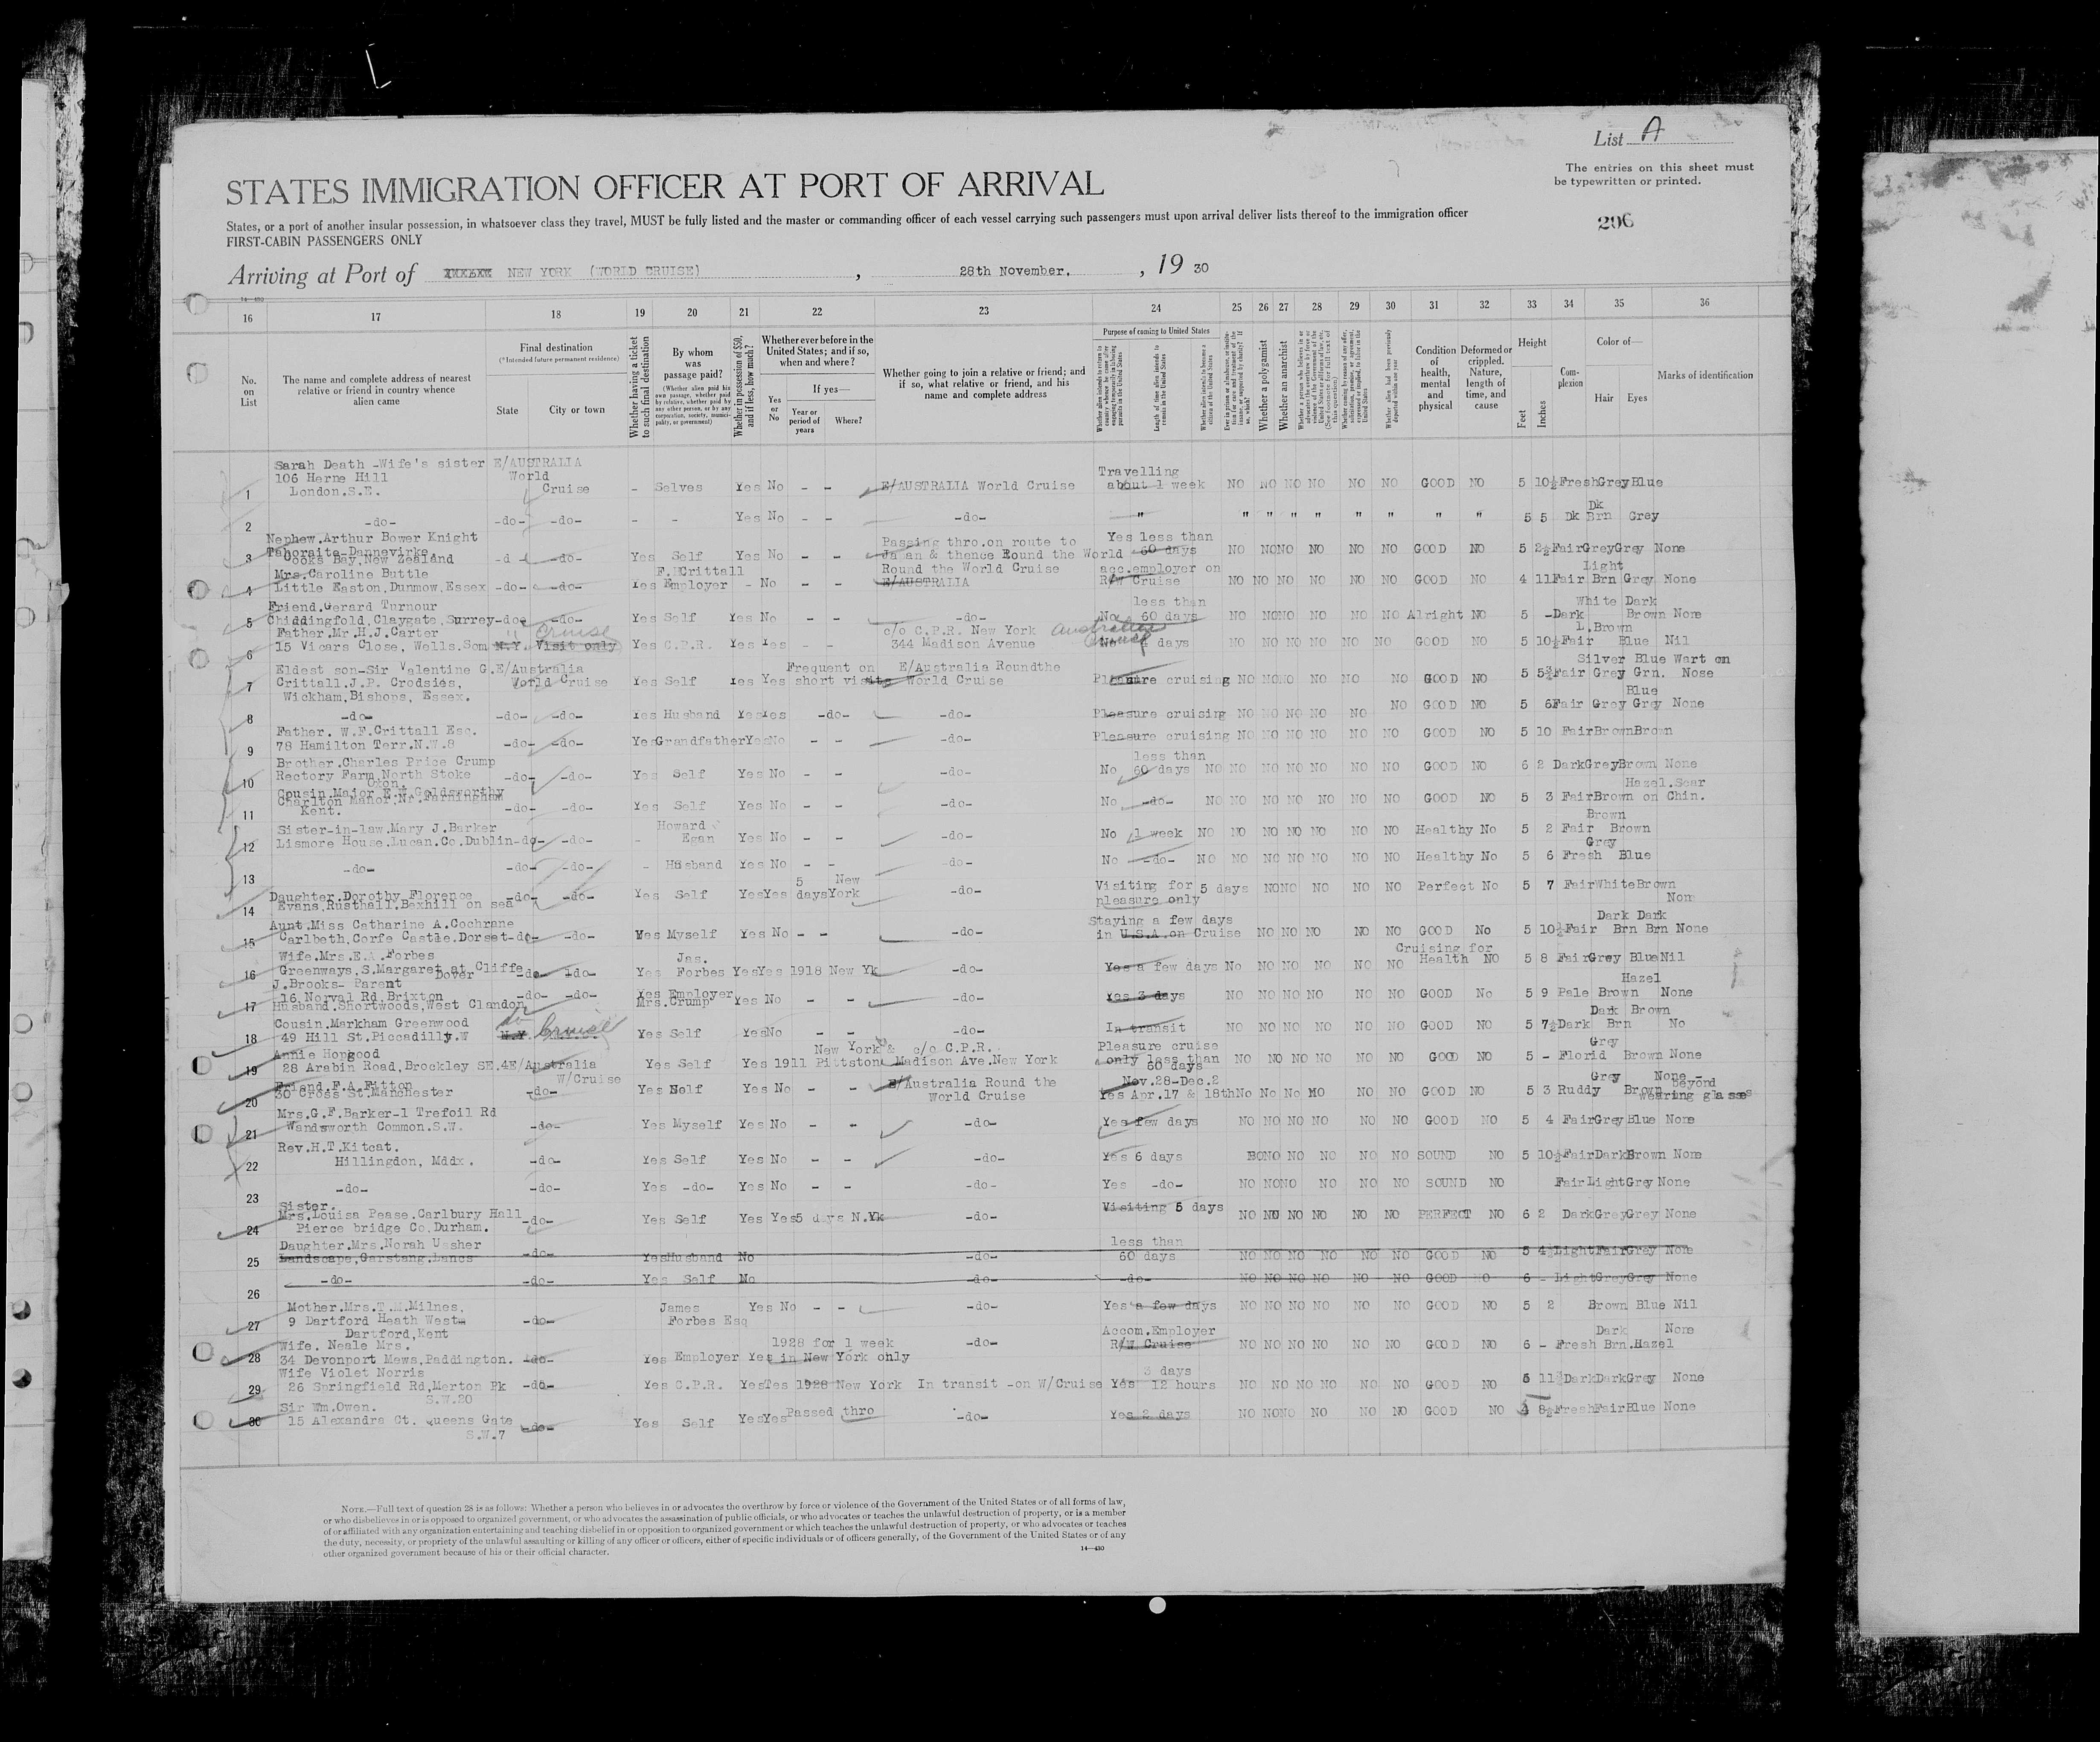 List A
The entries on this sheet must
be typewritten or printed.
STATES IMMIGRATION OFFICER AT PORT OF ARRIVAL
296
States, or a port of another insular possession, in whatsoever class they travel, MUST be fully listed and the master or commanding officer of each vessel carrying such passengers must upon arrival deliver lists thereof to the immigration officer
FIRST-CABIN PASSENGERS ONLY
Arriving at Port of NEW YORK (WORLD CRUISE), 28th November., 19 30
14—430
16 17 18 19 20 21 22 23 24 25 26 27 28 29 30 31 32 33 34 35 36
No. on List
The name and complete address of nearest relative or friend in country whence alien came
Final destination
(*Intended future permanent residence)
State
City or town
Whether having a ticket to such final destination
By whom was passage paid?
(Whether alien paid his own passage, whether paid by relative, whether paid by any other person, or by any corporation, society, municipality, or government)
Whether in possession of $50, and if less, how much?
Whether ever before in the United States; and if so, when and where?
Yes or No
If yes—
Year or period of years
Where?
Whether going to join a relative or friend; and if so, what relative or friend, and his name and complete address
Purpose of coming to United States
Length of time alien intends to remain in the United States
Whether alien intends to become a citizen of the United States
Whether a polygamist
Whether an anarchist
Condition of health, mental and physical
Deformed or crippled. Nature, length of time, and cause
Height
Feet
Inches
Complexion
Color of—
Hair
Eyes
Marks of identification
1 Sarah Death -Wife's sister 106 Herne Hill London.S.E. E/AUSTRALIA World Cruise - Selves Yes No - - E/AUSTRALIA World Cruise Travelling about 1 week NO NO NO NO NO NO GOOD NO 5 10½ Fresh Grey Blue
2 -do- -do- -do- - - Yes No - - -do- " " " " " " " " " 5 5 Dk Dk Brn Grey
3 Nephew.Arthur Bower Knight Dannevirke, Cooks Bay, New Zealand -d -do- Yes Self Yes No - - Passing thro.on route to Ja an & thence Round the World Yes less than 60 days NO NO NO NO NO NO GOOD NO 5 2½ Fair Grey Grey None
4 Mrs.Caroline Buttle Little Easton,Dunmow,Essex -do- -do- Yes Employer - No - - Round the World Cruise E/AUSTRALIA acc.employer on R/W Cruise NO NO NO NO NO NO GOOD NO 4 11 Fair Light Brn Grey None
5 Friend.Gerard Turnour Chiddingfold,Claygate,Surrey -do- -do- Yes Self Yes No - - -do- No less than 60 days NO NO NO NO NO NO Alright NO 5 - Dark White Dark Brown None
6 Father.Mr.H.J.Carter 15 Vicars Close, Wells.Som N.Y. Visit only Cruise Yes C.P.R. Yes Yes - - c/o C.P.R. New York 344 Madison Avenue No days NO NO NO NO NO NO GOOD NO 5 10½ Fair L.Brown Blue Nil
7 Eldest son-Sir Valentine G. Crittall.J.P. Crodsies, Wickham,Bishops, Essex. E/Australia World Cruise Yes Self Yes Yes Frequent on short visits E/Australia Roundthe World Cruise Pleasure cruising NO NO NO NO NO NO GOOD NO 5 5¾ Fair Silver Grey Blue Grn. Wart on Nose
8 -do- -do- -do- Yes Husband Yes Yes -do- -do- Pleasure cruising NO NO NO NO NO NO GOOD NO 5 6 Fair Grey Blue Grey None
9 Father. W.F.Crittall Esq. 78 Hamilton Terr.N.W.8 -do- -do- Yes Grandfather Yes No - - -do- Pleasure cruising NO NO NO NO NO NO GOOD NO 5 10 Fair Brown Brown
10 Brother.Charles Price Crump Rectory Farm,North Stoke Oxon. -do- -do- Yes Self Yes No - - -do- No less than 60 days NO NO NO NO NO NO NO GOOD NO 6 2 Dark Grey Brown None
11 Cousin.Major E.T.Goldsworthy Charlton Manor,Nr.Farningham Kent. -do- -do- Yes Self Yes No - - -do- No -do- NO NO NO NO NO NO NO GOOD NO 5 3 Fair Brown Hazel. Scar on Chin.
12 Sister-in-law.Mary J.Barker Lismore House.Lucan.Co.Dublin -do- -do- - Howard Egan Yes No - - -do- No 1 week NO NO NO NO NO NO NO Healthy No 5 2 Fair Brown Brown
13 -do- -do- -do- - Husband Yes No - - -do- No -do- NO NO NO NO NO NO NO Healthy No 5 6 Fresh Grey Blue
14 Daughter.Dorothy Florence Evans,Rusthall.Bexhill on sea -do- -do- Yes Self Yes Yes 5 days New York -do- Visiting for pleasure only 5 days NO NO NO NO NO Perfect No 5 7 Fair White Brown None
15 Aunt.Miss Catharine A.Cochrane Carlbeth,Corfe Castle.Dorset -do- -do- Yes Myself Yes No - - -do- Staying a few days in U.S.A.on Cruise NO NO NO NO NO GOOD No 5 10½ Fair Dark Brn Dark Brn None
16 Wife.Mrs.E.A.Forbes Greenways,S.Margaret at Cliffe Dover -do- -do- Yes Jas. Forbes Yes Yes 1918 New Yk -do- Yes a few days No NO NO NO NO NO Cruising for Health NO 5 8 Fair Grey Blue Nil
17 J.Brooks- Parent 16,Norval Rd,Brixton Husband.Shortwoods,West Clandon -do- -do- Yes Employer Mrs.Crump Yes No - - -do- Yes 3 days NO NO NO NO NO NO GOOD No 5 9 Pale Brown Hazel None
18 Cousin.Markham Greenwood 49 Hill St.Piccadilly.W N.Y. do Cruise Yes Self Yes No - - -do- In transit NO NO NO NO NO NO GOOD NO 5 7½ Dark Dark Brn Brown No
19 Annie Hopgood 28 Arabin Road,Brockley SE.4 E/Australia W/Cruise Yes Self Yes 1911 New York & Pittston c/o C.P.R. Madison Ave.New York Pleasure cruise only less than 60 days NO NO NO NO NO NO GOOD NO 5 - Florid Grey Brown None
20 Friend.F.A.Fitton 30 Cross St.Manchester -do- Yes Self Yes No - - E/Australia Round the World Cruise Nov.28-Dec.2 Yes Apr.17 & 18th No No No NO NO NO GOOD NO 5 3 Ruddy Grey Brown None - beyond wearing glasses
21 Mrs.G.F.Barker-1 Trefoil Rd Wandsworth Common.S.W. -do- Yes Myself Yes No - - -do- Yes few days NO NO NO NO NO NO GOOD NO 5 4 Fair Grey Blue None
22 Rev.H.T.Kitcat. Hillingdon, Mddx. -do- Yes Self Yes No - - -do- Yes 6 days NO NO NO NO NO NO SOUND NO 5 10½ Fair Dark Brown None
23 -do- -do- Yes -do- Yes No - - -do- Yes -do- NO NO NO NO NO NO SOUND NO Fair Light Grey None
24 Sister. Mrs.Louisa Pease.Carlbury Hall Pierce bridge Co.Durham. -do- Yes Self Yes Yes 5 days N.Yk -do- Visiting 5 days NO NO NO NO NO NO PERFECT NO 6 2 Dark Grey Grey None
25 Daughter.Mrs.Norah Ussher Landscape,Garstang.Lancs -do- Yes Husband No -do- less than 60 days NO NO NO NO NO NO GOOD NO 5 4½ Light Fair Grey None
26 -do- -do- Yes Self No -do- -do- NO NO NO NO NO NO GOOD NO 6 - Light Grey Grey None
27 Mother.Mrs.T.M.Milnes, 9 Dartford Heath West Dartford,Kent -do- James Forbes Esq Yes No - - -do- Yes a few days NO NO NO NO NO NO GOOD NO 5 2 Brown Blue Nil
28 Wife. Neale Mrs. 34 Devonport Mews,Paddington. -do- Yes Employer Yes 1928 for 1 week in New York only -do- Accom.Employer R/W Cruise NO NO NO NO NO NO GOOD NO 6 - Fresh Dark Brn. Hazel None
29 Wife Violet Norris 26 Springfield Rd,Merton Pk S.W.20 -do- Yes C.P.R. Yes Yes 1928 New York In transit -on W/Cruise Yes 3 days 12 hours NO NO NO NO NO NO GOOD NO 5 11½ Dark Dark Grey None
30 Sir Wm.Owen. 15 Alexandra Ct. Queens Gate S.W.7 -do- Yes Self Yes Yes Passed thro -do- Yes 2 days NO NO NO NO NO NO GOOD NO 8½ Fresh Fair Blue None
NOTE.—Full text of question 28 is as follows: Whether a person who believes in or advocates the overthrow by force or violence of the Government of the United States or of all forms of law,
or who disbelieves in or is opposed to organized government, or who advocates the assassination of public officials, or who advocates or teaches the unlawful destruction of property, or is a member
of or affiliated with any organization entertaining and teaching disbelief in or opposition to organized government or which teaches the unlawful destruction of property, or who advocates or teaches
the duty, necessity, or propriety of the unlawful assaulting or killing of any officer or officers, either of specific individuals or of officers generally, of the Government of the United States or of any
other organized government because of his or their official character.
14—430